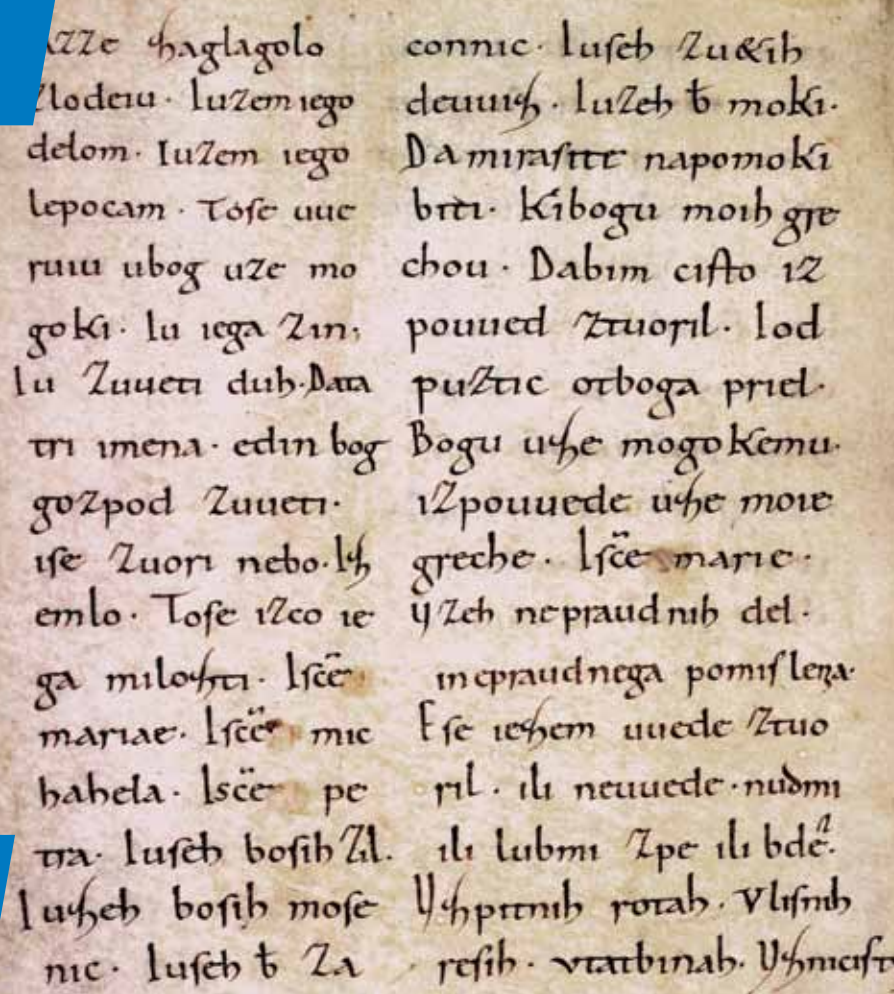 AZZe zaglagolo
Zlodeiu · IuZem iego
delom · IuZem iego
lepocam · Tose uue
ruiu ubog uZe mo
goki · Iu iega Zin ·
Iu Zuueti duh · Data
tri imena · edin bog
gozpod Zuueti ·
ise Zuori nebo · Iz
emlo · Tose iZco ie
ga milozti · Isc̄e
mariae · Isc̄e mic
hahela · Isc̄e pe
tra · Iuseh bosih Zil.
Iuzeh bosih mose
nic · Iuseh ƀ ZA
connic · Iuseh Zu&ih
deuuiz · IuZeh ƀ moki ·
DAmirasite napomoki
biti · Kibogu moih gre
chou · Dabim cisto iZ
pouued Ztuoril · Iod
puZtic otboga priel ·
Bogu uze mogokemu ·
iZpouuede uze moie
greche · Isc̄e marie ·
YZeh nepraudnih del ·
inepraudnega pomislena ·
Ese iezem uuede Ztuo
ril · ili neuuede · nudmi
ili lubmi Zpe ili bde ·
Yzpitnih rotah · Vlisnih
resih · vtatbinah · Yznicist